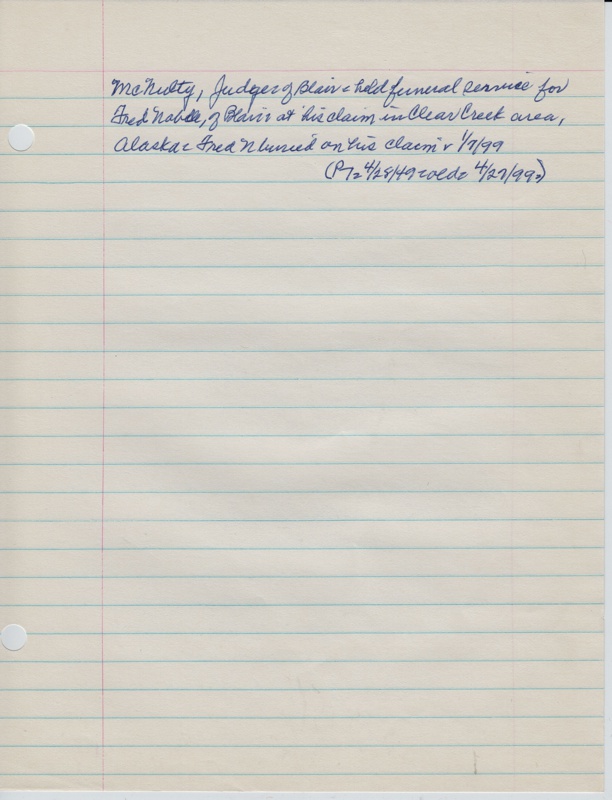 McNulty, Judge, of Blair - held funeral service for
Fred Noble, of Blair at his claim in Clear Creek area,
Alaska - Fred N buried on his claim - 1/7/99
(P 4/28/49 4/27/99)